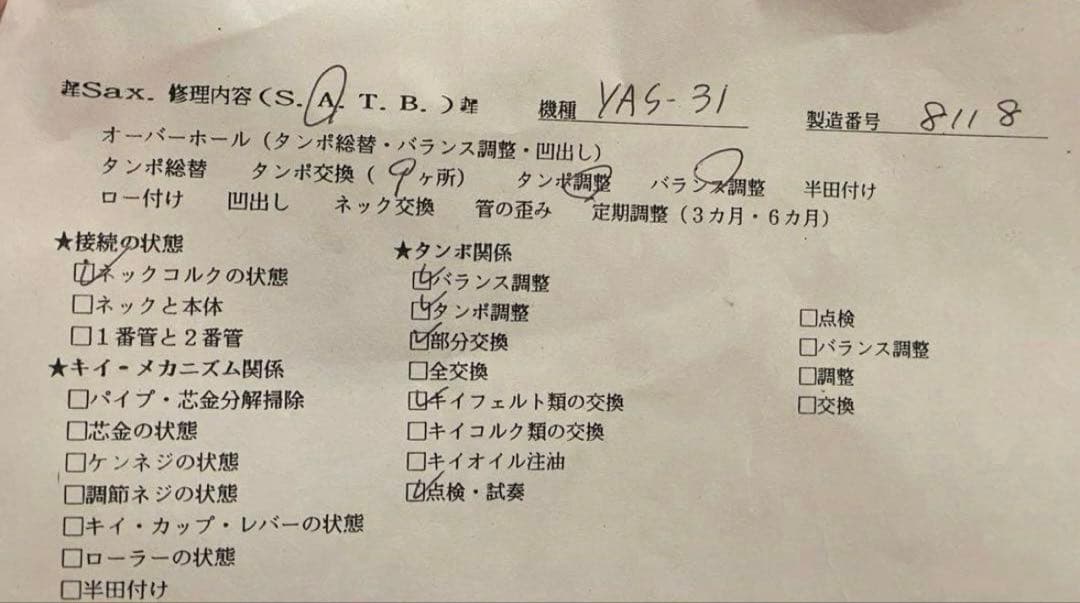 Sax. 修理内容(S. A. T. B. ) 機種 YAS-31 製造番号 8118
オーバーホール(タンポ総替・バランス調整・凹出し)
タンポ総替 タンポ交換( 9ヶ所) タンポ調整 バランス調整 半田付け
ロー付け 凹出し ネック交換 管の歪み 定期調整(3カ月・6カ月)
★接続の状態
☑ネックコルクの状態
□ネックと本体
□1番管と2番管
★キイ-メカニズム関係
□パイプ・芯金分解掃除
□芯金の状態
□ケンネジの状態
□調節ネジの状態
□キイ・カップ・レバーの状態
□ローラーの状態
□半田付け
★タンポ関係
☑バランス調整
☑タンポ調整
☑部分交換
□全交換
☑キイフェルト類の交換
□キイコルク類の交換
□キイオイル注油
☑点検・試奏
□点検
□バランス調整
□調整
□交換